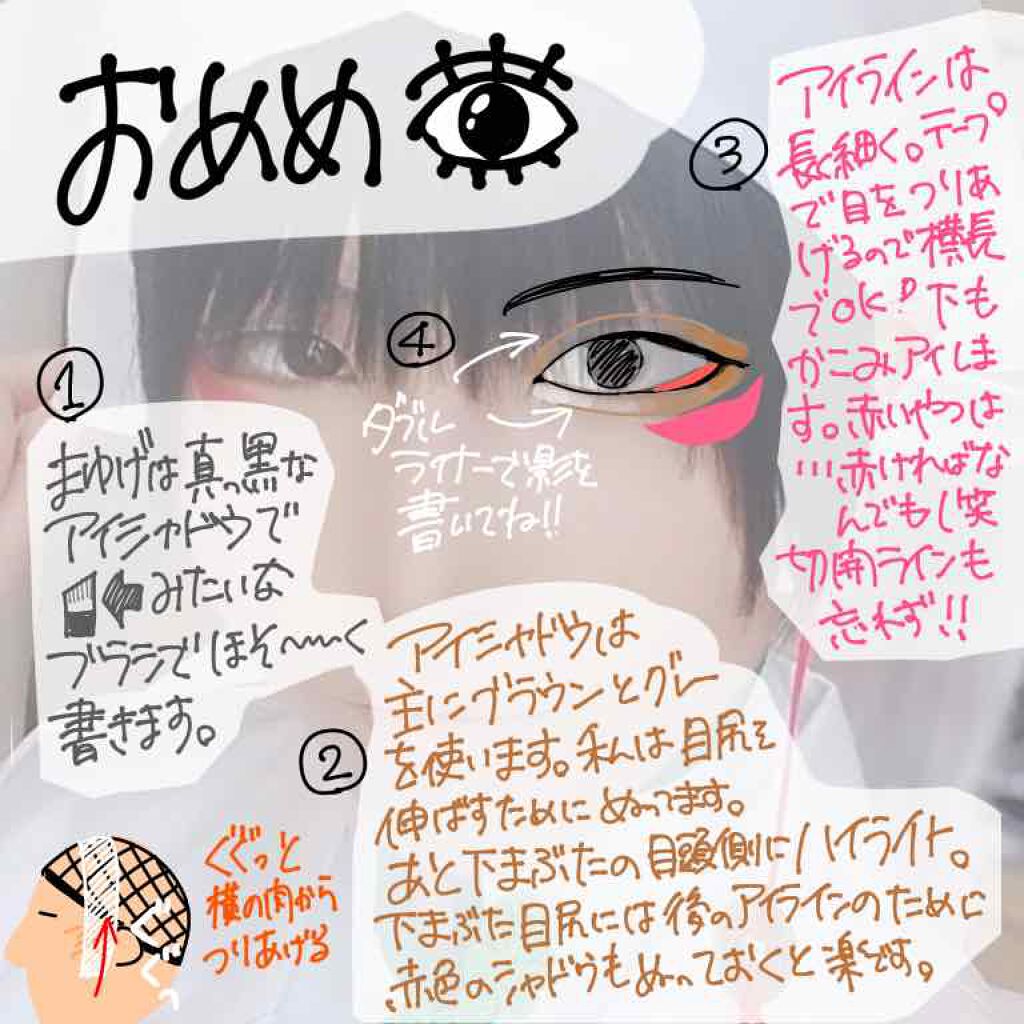 おめめ
①
まゆげは真っ黒な
アイシャドウで
みたいな
ブラシでほそ〜〜く
書きます。
②
アイシャドウは
主にブラウンとグレー
を使います。私は目尻を
伸ばすためにぬってます。
あと下まぶたの目頭側にハイライト。
下まぶた目尻には後のアイラインのために
赤色のシャドウもぬっておくと楽です。
③
アイラインは
長く細く。テープ
で目をつりあ
げるので横長
でOK!下も
かこみアイしま
す。赤いやつは
…赤ければな
んでもし笑
切開ラインも
忘れず!!
④
ダブル
ライナーで影を
書いてね!!
ぐぐっと
横の肉から
つりあげる
ぐぐっ